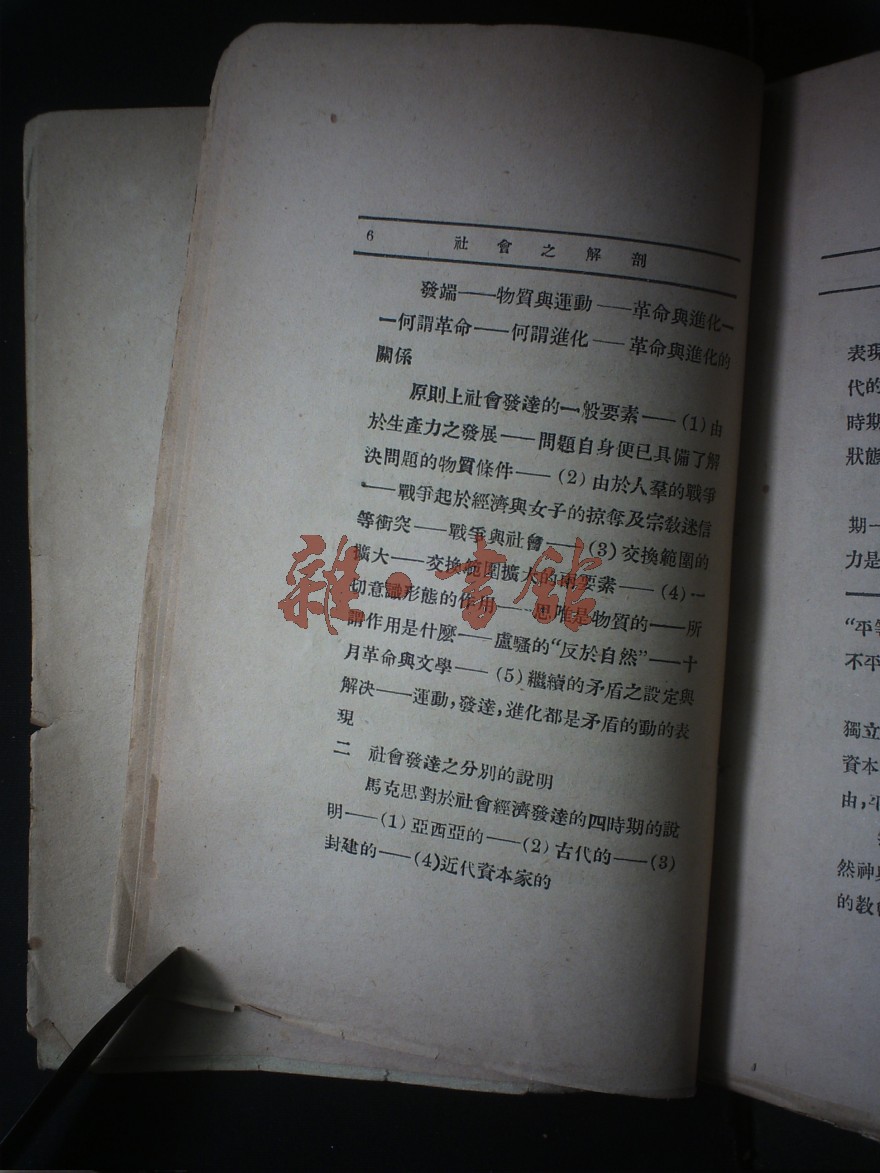 6 社會之解剖
發端——物質與運動——革命與進化—
—何謂革命——何謂進化——革命與進化的
關係
原則上社會發達的一般要素——(1)由
於生產力之發展——問題自身便已具備了解
決問題的物質條件——(2)由於人羣的戰爭
——戰爭起於經濟與女子的掠奪及宗敎迷信
等衝突——戰爭與社會——(3)交換範圍的
擴大——交換範圍擴大的兩要素——(4)一
切意識形態的作用——思唯是物質的——所
謂作用是什麼——盧騷的“反於自然”——十
月革命與文學——(5)繼續的矛盾之設定與
解決——運動,發達,進化都是矛盾的動的表
現
二 社會發達之分別的說明
馬克思對於社會經濟發達的四時期的說
明——(1)亞西亞的——(2)古代的——(3)
封建的——(4)近代資本家的
雜·書館
表現
代的
時期
狀態
期一
力是
“平等
不平
獨立
資本
由,平
然神與
的敎會